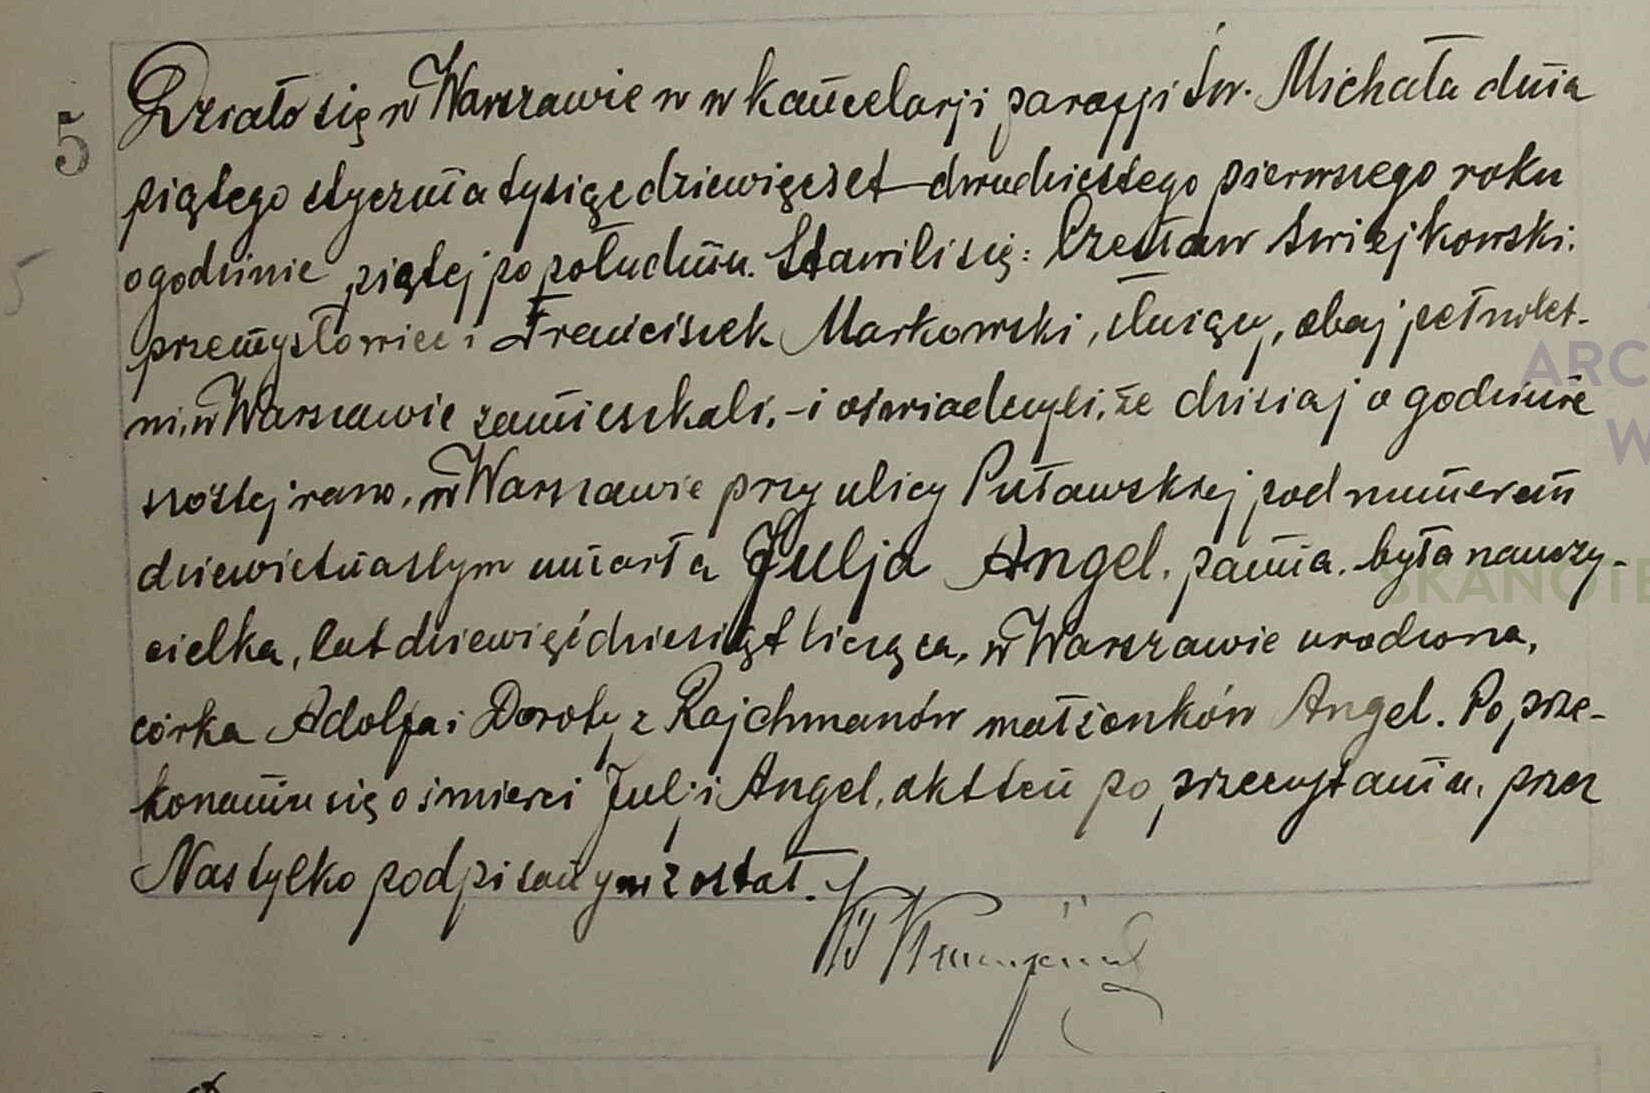 5
Działo się w Warszawie w w kancelarji parafji Św. Michała dnia
piątego stycznia tysiąc dziewięćset dwudziestego pierwszego roku
o godzinie piątej po południu. Stawili się: Czesław
przemysłowiec i Franciszek Markowski, służący, obaj pełnolet-
ni, w Warszawie zamieszkali, - i oświadczyli, że dzisiaj o godzinie
szóstej rano, w Warszawie przy ulicy Puławskiej pod numerem
dziewiętnastym umarła Julja Angel, panna, była nauczy-
cielka, lat dziewięćdziesiąt licząca, w Warszawie urodzona,
córka Adolfa i Doroty z Rajchmanów małżonków Angel. Po prze-
konaniu się o śmierci Julji Angel, akt ten po przeczytaniu, przez
Nas tylko podpisanym został.
5
ARC
W
SKANOTE